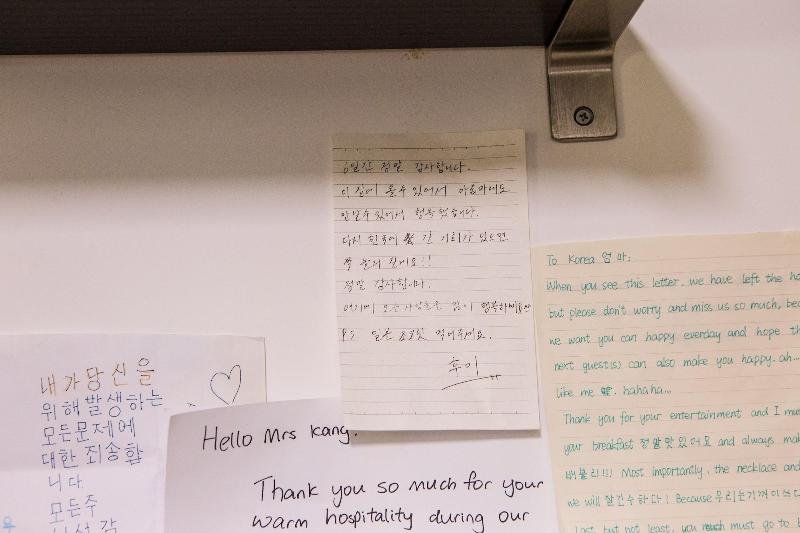 6일간 정말 감사합니다.
이 집에 올수 있어서 아줌마에도
만날수 있어서 행복했습니다.
다시 한국에 갈 기회가 있으면
꼭 놀러 갈게요!!
정말 감사합니다.
여기에 오는 사람들은 많이 행복하세요
P.S 일본 초콜릿 먹어주세요.
후미
To Korea 엄마;
When you see this letter, we have left the
but please don't worry and miss us so much,
we want you can happy everday and hope
next guest(s) can also make you happy. ah...
like me hahaha...
Thank you for your entertainment and I
your breakfast 정말맛있어요 and always
배불러!!! Most importantly, the necklace
we will 잘간수하다! Because 우리는
Last but not least, you must go to
내가당신을
위해발생하는
모든문제에
대한죄송합
니다
모든주
Hello Mrs Kang.
Thank you so much for your
warm hospitality during our